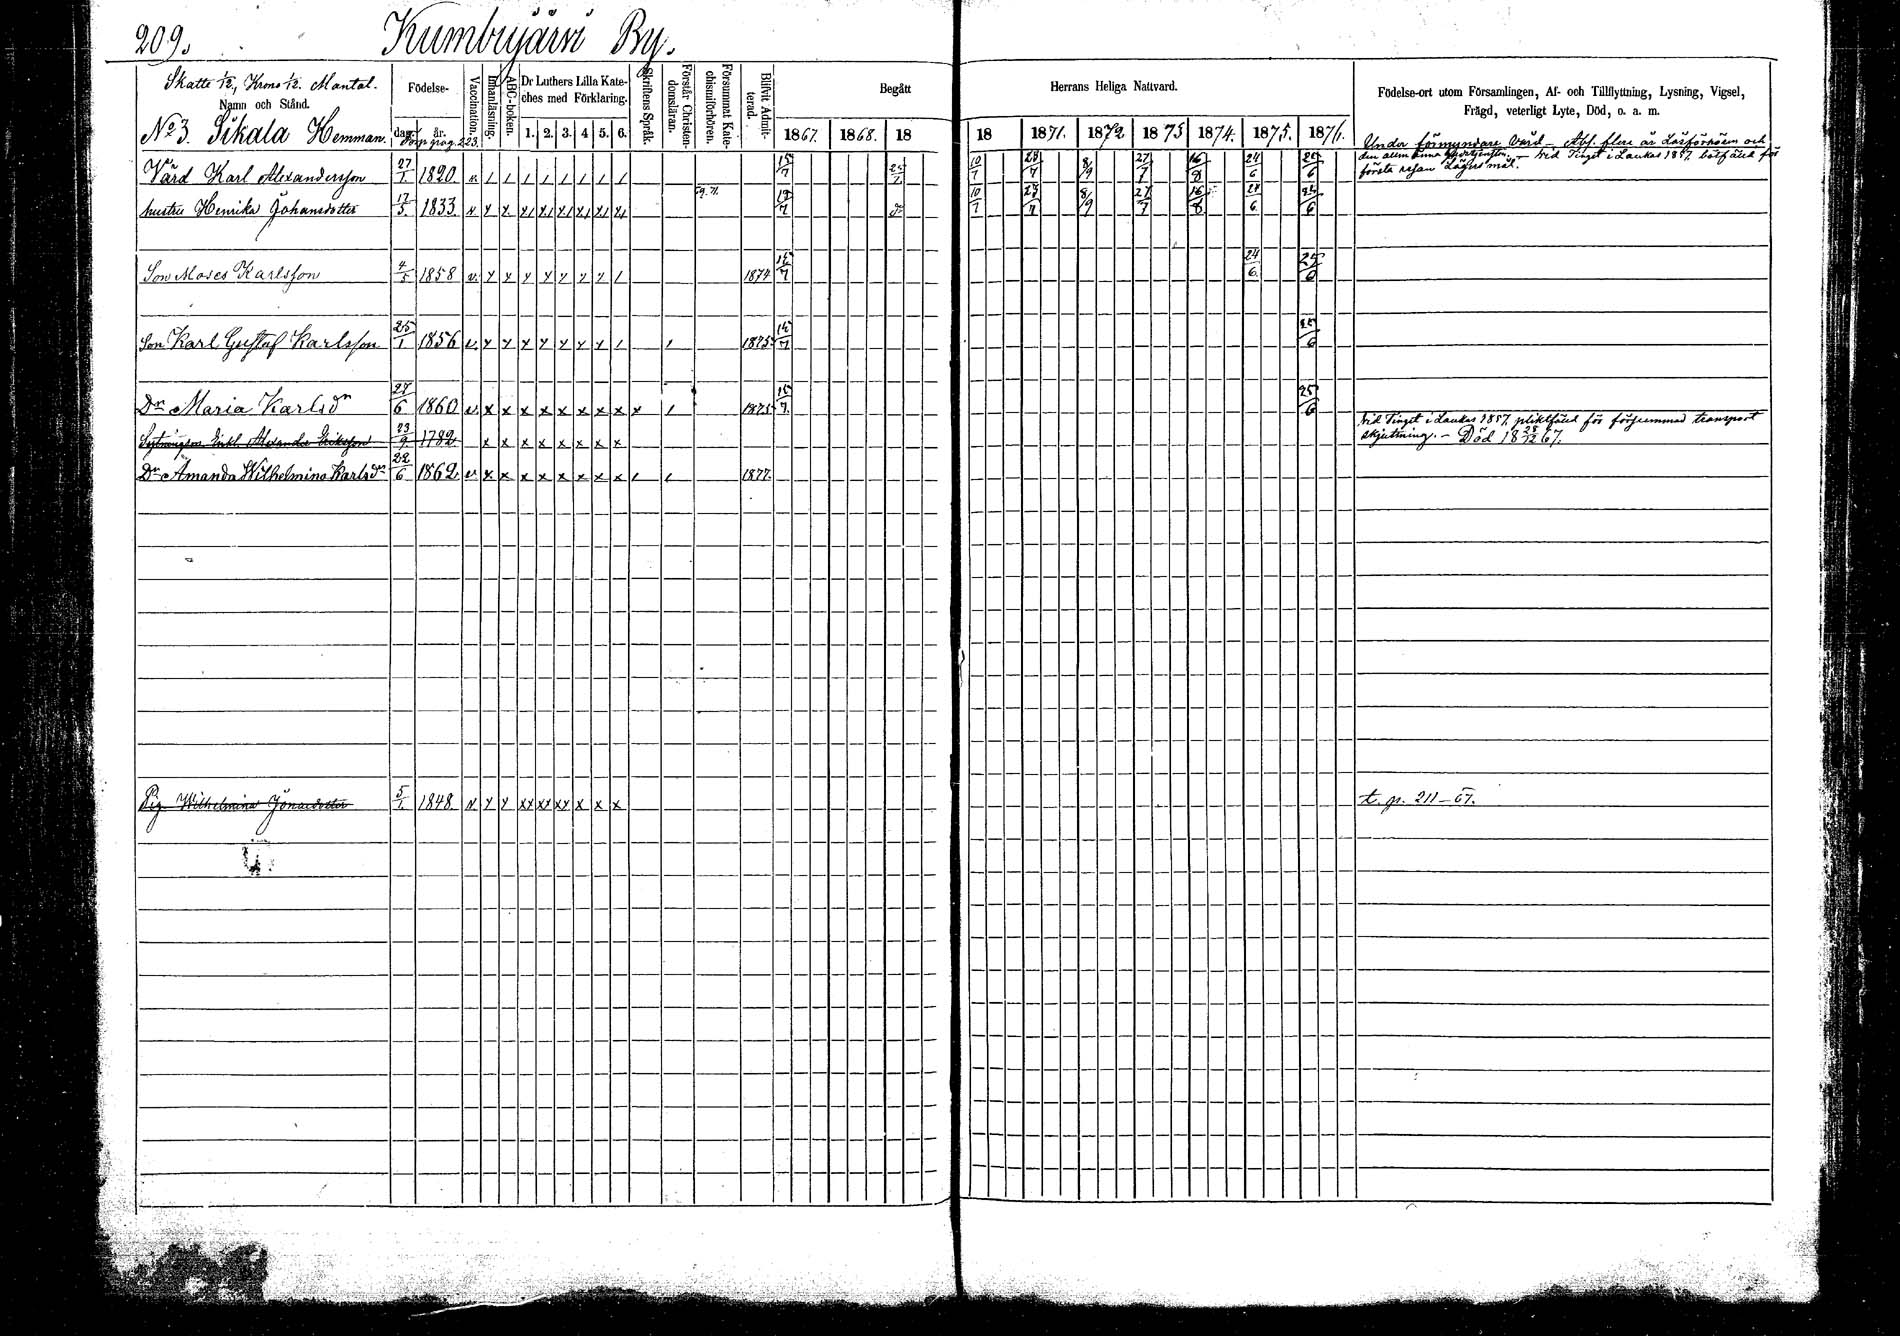 209.
Kumbujärvi By.
Skatte 1/12, Krono 1/12. Mantal.
Namn och Stånd.
No 3. Sikala Hemman.
Födelse-
dag. år.
pag. 223.
Vaccination.
Innanläsning.
ABC-boken.
Dr Luthers Lilla Kate-
ches med Förklaring.
1. 2. 3. 4 5. 6.
Skriftens Språk.
Förstår Christen-
domsläran.
Försummat Kate-
chismiförhören.
Blifvit Admit-
terad.
Begått
1867. 1868. 18
Herrans Heliga Nattvard.
18 1871. 1872 1873 1874. 1875. 1876.
Födelse-ort utom Församlingen, Af- och Tillflyttning, Lysning, Vigsel,
Frägd, veterligt Lyte, Död, o. a. m.
Under förmyndare Vård — Abs. flere år Läsförhören och
den allmänna — vid Tinget i Laukas 1857 bötfäld för
första resan Lägersmål.
Värd Karl Alexandersson 27/1 1820 v. / / / / / / / / 15/7 10/7 8/9 27/7 16/8 24/6 25/6
hustru Henrika Johansdotter 17/5 1833. v 10/7 8/9 27/7 16/8 24/6 25/6
Son Moses Karlsson 4/5 1858 v. 1874 24/6 25/6
Son Karl Gustaf Karlsson 25/1 1856 v. 1875 25/6
Dr Maria Karlsdr 27/6 1860 v. x x x x x x x x x / 1875 15/7 25/6
Enkl. Alexander Eriksson 23/9 1782 x x x x x x x x
vid Tinget i Laukas 1857 pliktfäld för försummad transport
skjutsning. — Död 18 28/12 67.
Dr Amanda Wilhelmina Karlsdr 22/6 1862 v. x x x x x x x x / / 1877.
Pig. Wilhelmina Jonasdotter 5/1 1848. v xx xx xx x x x
t. p. 211 — 67.